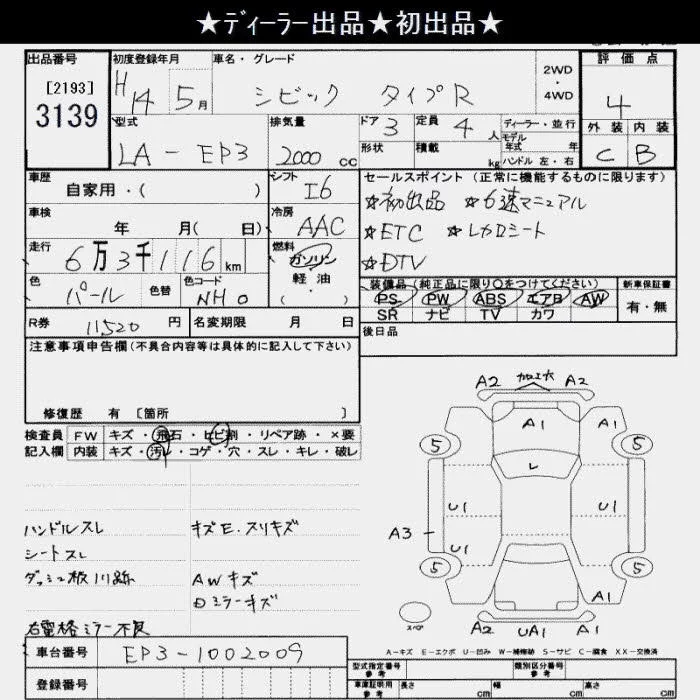 ★ディーラー出品★初出品★
出品番号 初度登録年月 車名・グレード 2WD・4WD 評価点
[2193]
3139
H14 5月 シビック タイプR 4
型式 排気量 ドア 3 定員 4人 ディーラー・並行 外装 内装
モデル年式 年
LA-EP3 2000cc 形状 積載 kg ハンドル 左・右 C B
車歴 自家用・( ) シフト I6
セールスポイント(正常に機能するものに限ります)
☆初出品 ☆6速マニュアル
車検 年 月( 日) 冷房 AAC
☆ETC ☆レカロシート
走行 6万3千116km 燃料 ガソリン
軽・油
・( )
☆DTV
色 パール 色替 色コード NHO
装備品(純正品に限り○をつけてください) 新車保証書
PS PW ABS エアB AW 有・無
SR ナビ TV カワ
R券 11520円 名変期限 月 日
後日品
注意事項申告欄(不具合内容等は具体的に記入して下さい)
修復歴 有 [箇所 ]
検査員 FW キズ・飛石・ヒビ割・リペア跡・×要
記入欄 内装 キズ・汚レ・コゲ・穴・スレ・キレ・破レ
ハンドルスレ キズE.スリキズ
シートスレ
ダッシュ板川跡 AWキズ
Dミラーキズ
右電格ミラー不良
車台番号 EP3-1002009
登録番号
A2 加工大 A2
A1 A1
5 5
L
U1 U1
A3 U1
5 5
A1 A1
スペア A2 UA1 A1
A-キズ E-エクボ U-凹み W-補修跡 S-サビ C-腐食 XX-交換済
型式指定番号 参考 類別区分番号 参考
車庫証明用 参考 長さ cm 幅 cm 高さ cm